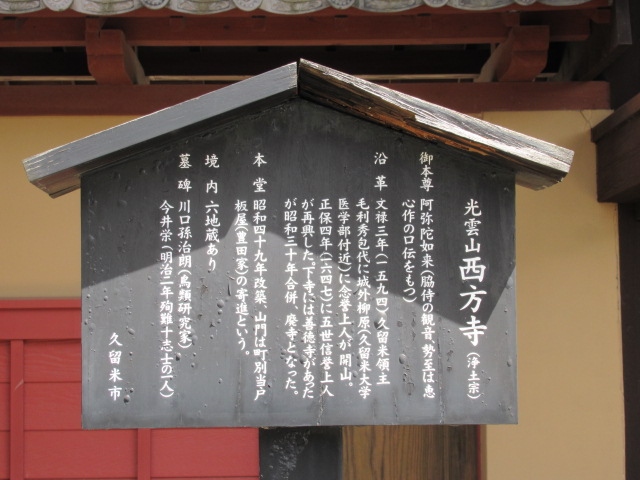 光雲山 西方寺（浄土宗）
御本尊 阿弥陀如来（脇侍の観音、勢至は恵
心作の口伝をもつ）
沿革 文禄三年（一五九四）久留米領主
毛利秀包代に城外柳原（久留米大学
医学部付近）に念誉上人が開山。
正保四年（一六四七）に五世信誉上人
が再興した。下寺には善徳寺があった
が昭和三十年合併、廃寺となった。
本堂 昭和四十九年改築、山門は町別当戸
板屋（豊田家）の寄進という。
境内 六地蔵あり
墓碑 川口孫治郎（鳥類研究家）
今井栄（明治二年殉難十志士の一人）
久留米市